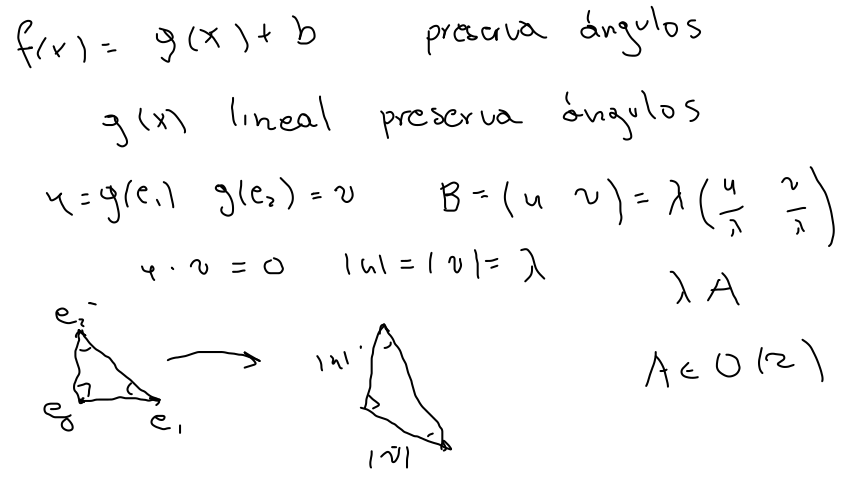 f(x) = g(x) + b preserva ángulos
g(x) lineal preserva ángulos
u = g(e₁) g(e₂) = v B = (u v) = λ(u/λ v/λ)
u · v = 0 |u| = |v| = λ
λ A
A ∈ O(2)
e₂
e₀ e₁
|u|
|v|